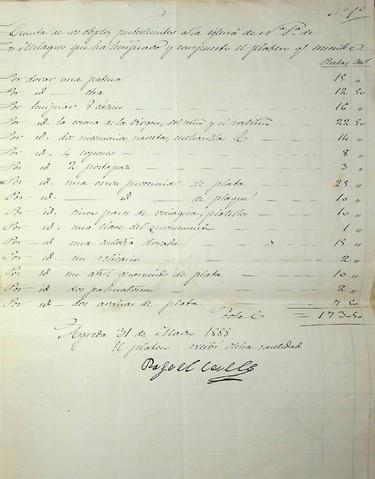 Nº 1º
Cuenta de los objetos pertenecientes a la iglesia de Nª Sª de
los Milagros que ha limpiado y compuesto el platero que suscribe
Pesetas Cent.
Por dorar una patena — 18 "
Por id — otra — 12 50
Por limpiar 8 calices — 16 "
Por id. la corona de la Virgen, del niño y el — 22 50
Por id. dos incensarios, navetas, cucharillas &. — 14 "
Por id. 4 copones — 8 "
Por id. 2 portapaces — 3 "
Por id. una cruz procesional de plata — 25 "
Por id. id — de plaqué — 10 "
Por id. cinco pares de vinageras, platillos — 10 "
Por id. una llave del monumento — 1 "
Por id — una dorada — 18 "
Por id. un relicario — 2 "
Por id. un de plata — 10 "
Por id. dos palmatorias — 2 "
Por id — dos de plata — 7 50
Total = 173 50
Agreda 31 de Marzo 1888
El platero recibi dicha cantidad
Rafael